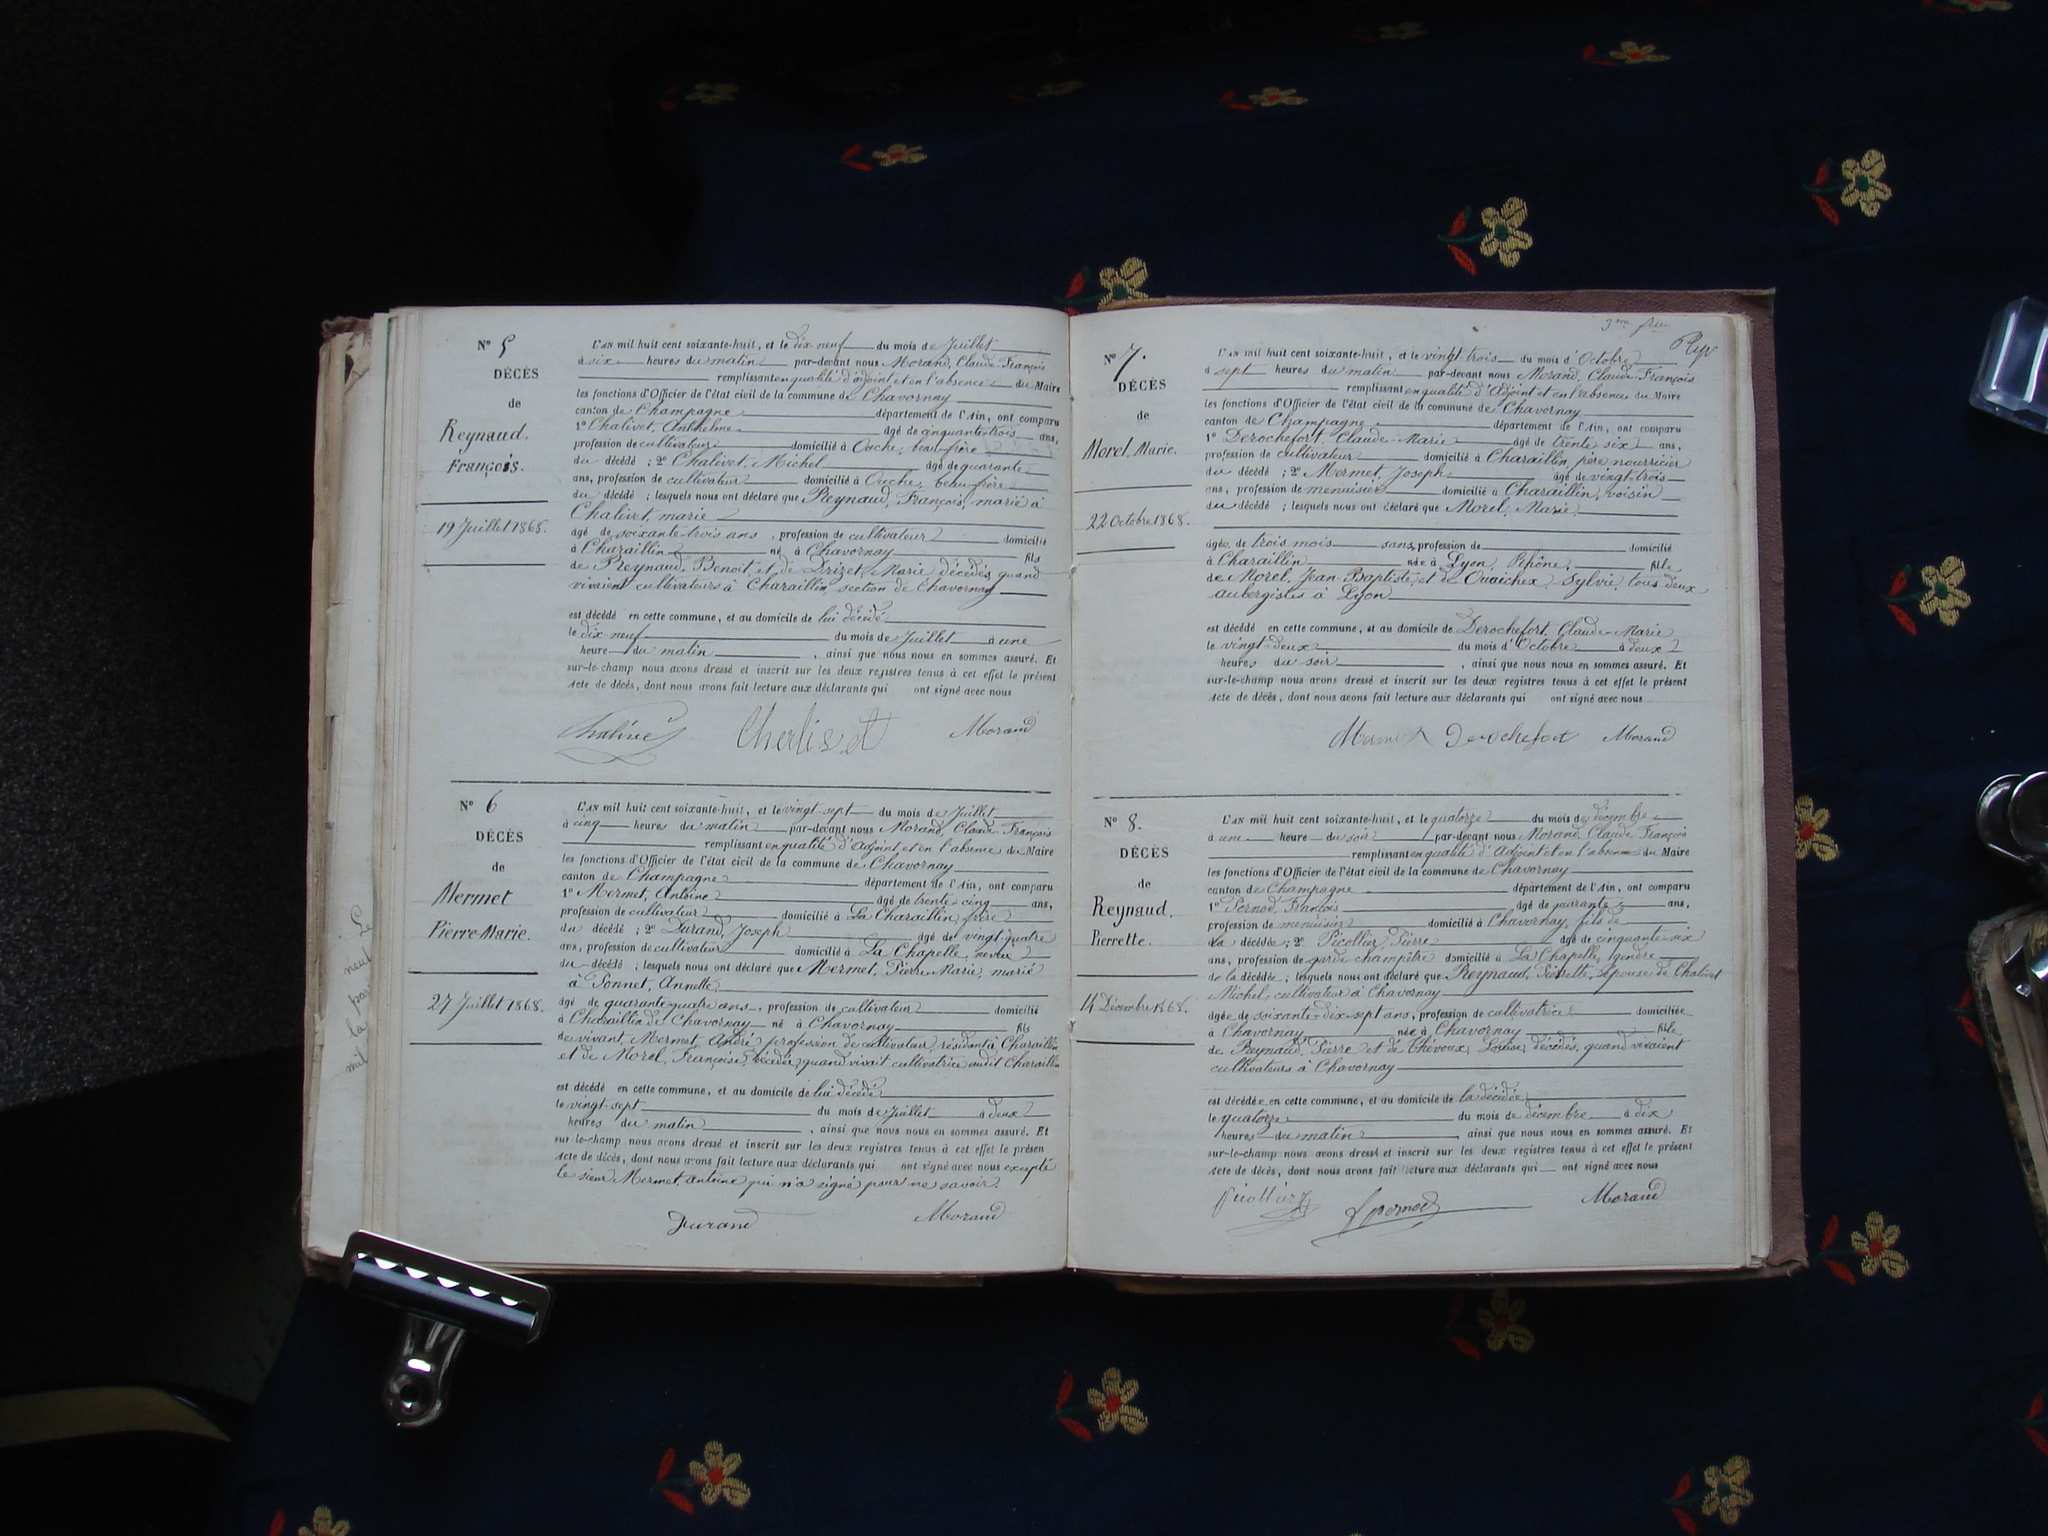 N° 5
DÉCÈS
de
Reynaud.
François.
19 Juillet 1868.
L'AN mil huit cent soixante-huit, et le dix neuf du mois de Juillet
à six heures du matin par-devant nous Morand, Claude-François
remplissant en qualité d'adjoint et en l'absence du Maire
les fonctions d'Officier de l'état civil de la commune de Chavornay
canton de Champagne département de l'Ain, ont comparu
1° Chalivet, Anthelme âgé de cinquante-trois ans,
profession de cultivateur domicilié à Ouche, beau-frère
du décédé ; 2° Chalivet, Michel âgé de quarante
ans, profession de cultivateur domicilié à Ouche, beau-frère
du décédé ; lesquels nous ont déclaré que Reynaud, François, marié à
Chalivet, marie
âgé de soixante-trois ans, profession de cultivateur domicilié
à Charaillin né à Chavornay fils
de Reynaud, Benoit, et de Drizet, Marie décédés, quand
vivaient cultivateurs à Charaillin, section de Chavornay
est décédé en cette commune, et au domicile de lui décédé
le dix-neuf du mois de Juillet à une
heure du matin, ainsi que nous nous en sommes assuré. Et
sur-le-champ nous avons dressé et inscrit sur les deux registres tenus à cet effet le présent
acte de décès, dont nous avons fait lecture aux déclarants qui ont signé avec nous
Morand
N° 6
DÉCÈS
de
Mermet
Pierre-Marie.
27 Juillet 1868.
L'AN mil huit cent soixante-huit, et le vingt-sept du mois de Juillet
à cinq heures du matin par-devant nous Morand, Claude-François
remplissant en qualité d'Adjoint et en l'absence du Maire
les fonctions d'Officier de l'état civil de la commune de Chavornay
canton de Champagne département de l'Ain, ont comparu
1° Mermet, Antoine âgé de trente-cinq ans,
profession de cultivateur domicilié à La Charaillin, frère
du décédé ; 2° Durand, Joseph âgé de vingt-quatre
ans, profession de cultivateur domicilié à La Chapelle, neveu
du décédé ; lesquels nous ont déclaré que Mermet, Pierre Marie, marié
à Ponnet, Annette
âgé de quarante-quatre ans, profession de cultivateur domicilié
à Charaillin de Chavornay né à Chavornay fils
de vivant, Mermet, André, profession de cultivateur, résidant à Charaillin
et de Morel, Françoise, décédée, quand vivait cultivatrice audit Charaillin
est décédé en cette commune, et au domicile de lui décédé
le vingt-sept du mois de Juillet à deux
heures du matin, ainsi que nous nous en sommes assuré. Et
sur-le-champ nous avons dressé et inscrit sur les deux registres tenus à cet effet le présen
acte de décès, dont nous avons fait lecture aux déclarants qui ont signé avec nous excepté
le sieur Mermet, antoine qui n'a signé pour ne savoir.
Durand Morand
N° 7.
DÉCÈS
de
Morel, Marie.
22 Octobre 1868.
L'AN mil huit cent soixante-huit, et le vingt-trois du mois d'Octobre
à sept heures du matin par-devant nous Morand, Claude-François
remplissant en qualité d'Adjoint et en l'absence du Maire
les fonctions d'Officier de l'état civil de la commune de Chavornay
canton de Champagne département de l'Ain, ont comparu
1° Derochefort, Claude-Marie âgé de trente six ans,
profession de cultivateur domicilié à Charaillin, père nourricier
du décédé ; 2° Mermet, Joseph âgé de vingt-trois
ans, profession de menuisier domicilié à Charaillin, voisin
du décédé ; lesquels nous ont déclaré que Morel, Marie
âgée de trois mois sans profession de domicilié
à Charaillin née à Lyon, Rhône, fille
de Morel, Jean-Baptiste, et de Sylvie, tous deux
aubergistes à Lyon
est décédé en cette commune, et au domicile de Derochefort, Claude-Marie
le vingt-deux du mois d'Octobre à deux
heures du soir, ainsi que nous nous en sommes assuré. Et
sur-le-champ nous avons dressé et inscrit sur les deux registres tenus à cet effet le présent
acte de décès, dont nous avons fait lecture aux déclarants qui ont signé avec nous
Mermet Derochefort Morand
N° 8.
DÉCÈS
de
Reynaud,
Pierrette.
14 Décembre 1868.
L'AN mil huit cent soixante-huit, et le quatorze du mois de décembre
à une heure du soir par-devant nous Morand, Claude François
remplissant en qualité d'Adjoint et en l'absence du Maire
les fonctions d'Officier de l'état civil de la commune de Chavornay
canton de Champagne département de l'Ain, ont comparu
1° Pernod, François âgé de quarante ans,
profession de menuisier domicilié à Chavornay, fils de
la décédée ; 2° Picollier, Pierre âgé de cinquante-six
ans, profession de garde champêtre domicilié à La Chapelle, gendre
de la décédée ; lesquels nous ont déclaré que Reynaud, Pierrette, épouse de Chalivet
Michel, cultivateur à Chavornay
âgée de soixante-dix-sept ans, profession de cultivatrice domiciliée
à Chavornay née à Chavornay fille
de Reynaud, Pierre et de Thévoux, Louise, décédés, quand vivaient
cultivateurs à Chavornay
est décédée en cette commune, et au domicile de la décédée
le quatorze du mois de décembre à dix
heures du matin, ainsi que nous nous en sommes assuré. Et
sur-le-champ nous avons dressé et inscrit sur les deux registres tenus à cet effet le présent
acte de décès, dont nous avons fait lecture aux déclarants qui ont signé avec nous
Picollier pernod Morand